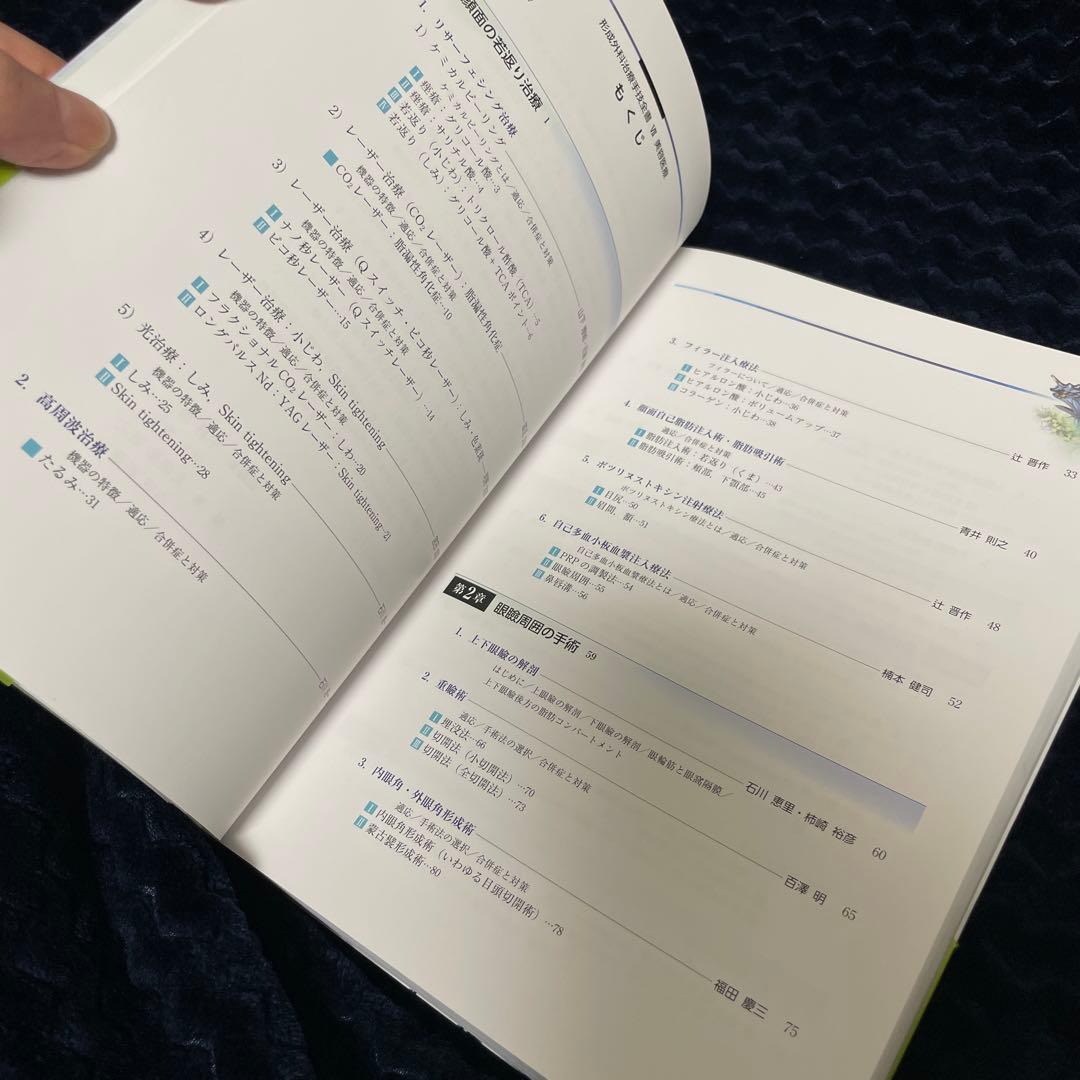 形成外科治療手技全書 Ⅶ 美容医療
もくじ
顔面の若返り治療 1
1. リサーフェシング治療
1) ケミカルピーリング
ケミカルピーリングとは／適応／合併症と対策
Ⅰ 痤瘡：グリコール酸…3
Ⅱ 痤瘡：サリチル酸…4
Ⅲ 若返り（小じわ）：トリクロール酢酸（TCA）…5
Ⅳ 若返り（しみ）：グリコール酸＋TCAポイント…6
2) レーザー治療（CO₂レーザー）：脂漏性角化症
機器の特徴／適応／合併症と対策
CO₂レーザー：脂漏性角化症…10
3) レーザー治療（Qスイッチ、ピコ秒レーザー）：しみ、
機器の特徴／適応／合併症と対策
Ⅰ ナノ秒レーザー（Qスイッチレーザー）…14
Ⅱ ピコ秒レーザー…15
4) レーザー治療：小じわ Skin tightening
機器の特徴／適応／合併症と対策
Ⅰ フラクショナルCO₂レーザー：しわ…20
Ⅱ ロングパルスNd：YAGレーザー：Skin tightening…21
5) 光治療：しみ、Skin tightening
機器の特徴／適応／合併症と対策
Ⅰ しみ…25
Ⅱ Skin tightening…28
2. 高周波治療
機器の特徴／適応／合併症と対策
たるみ…31
3. フィラー注入療法 辻 晋作 33
フィラーについて／適応／合併症と対策
Ⅰ ヒアルロン酸：小じわ…36
Ⅱ ヒアルロン酸：ボリュームアップ…37
Ⅲ コラーゲン：小じわ…38
4. 顔面自己脂肪注入術・脂肪吸引術 青井 則之 40
適応／合併症と対策
Ⅰ 脂肪注入術：若返り（くま）…43
Ⅱ 脂肪吸引術：頬部、下顎部…45
5. ボツリヌストキシン注射療法 辻 晋作 48
ボツリヌストキシン療法とは／適応／合併症と対策
Ⅰ 目尻…50
Ⅱ 眉間、額…51
6. 自己多血小板血漿注入療法 楠本 健司 52
自己多血小板血漿療法とは／適応／合併症と対策
Ⅰ PRPの調製法…54
Ⅱ 眼瞼周囲…55
Ⅲ 鼻唇溝…56
第2章 眼瞼周囲の手術 59
1. 上下眼瞼の解剖 石川 恵里・柿崎 裕彦 60
はじめに／上眼瞼の解剖／下眼瞼の解剖／眼輪筋と眼窩隔膜／
上下眼瞼後方の脂肪コンパートメント
2. 重瞼術 百澤 明 65
適応／手術法の選択／合併症と対策
Ⅰ 埋没法…66
Ⅱ 切開法（小切開法）…70
Ⅲ 切開法（全切開法）…73
3. 内眼角・外眼角形成術 福田 慶三 75
適応／手術法の選択／合併症と対策
Ⅰ 内眼角形成術（いわゆる目頭切開術）…78
Ⅱ 蒙古襞形成術…80